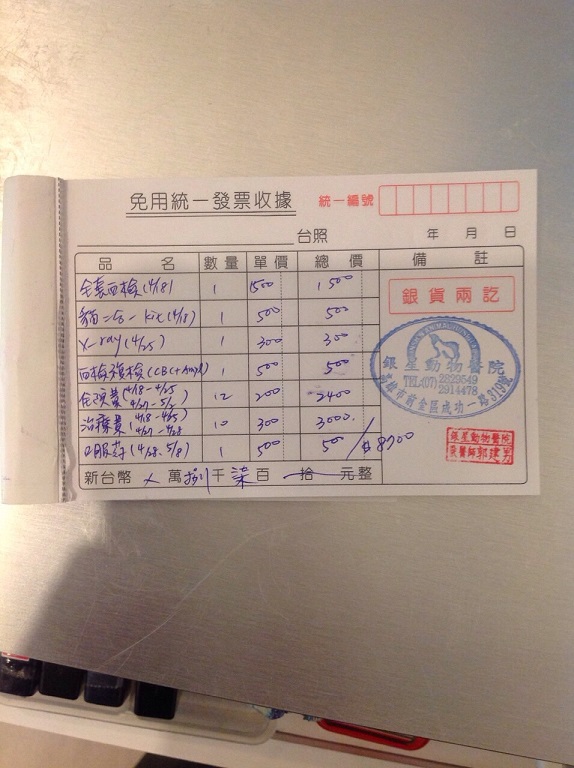 免用統一發票收據
統一編號
台照 年 月 日
品 名 數量 單價 總 價 備 註
全套血檢(4/18) 1 1500 1500
貓二合一 kit(4/18) 1 500 500
X-ray(4/25) 1 300 300
血檢複檢(CBC+Amyl) 1 500 500
住院費(4/18-4/25 4/27-5/1) 12 200 2400
治療費(4/18-4/25 4/27-4/28) 10 300 3000
口服葯(4/28-5/8) 1 500 500 / $8700
新台幣 万 萬 捌 千 柒 百 拾 元整
銀貨兩訖
銀星動物醫院
TEL:(07) 2829549
2914478
高雄市前金區成功一路
銀星動物醫院
獸醫師郭建男